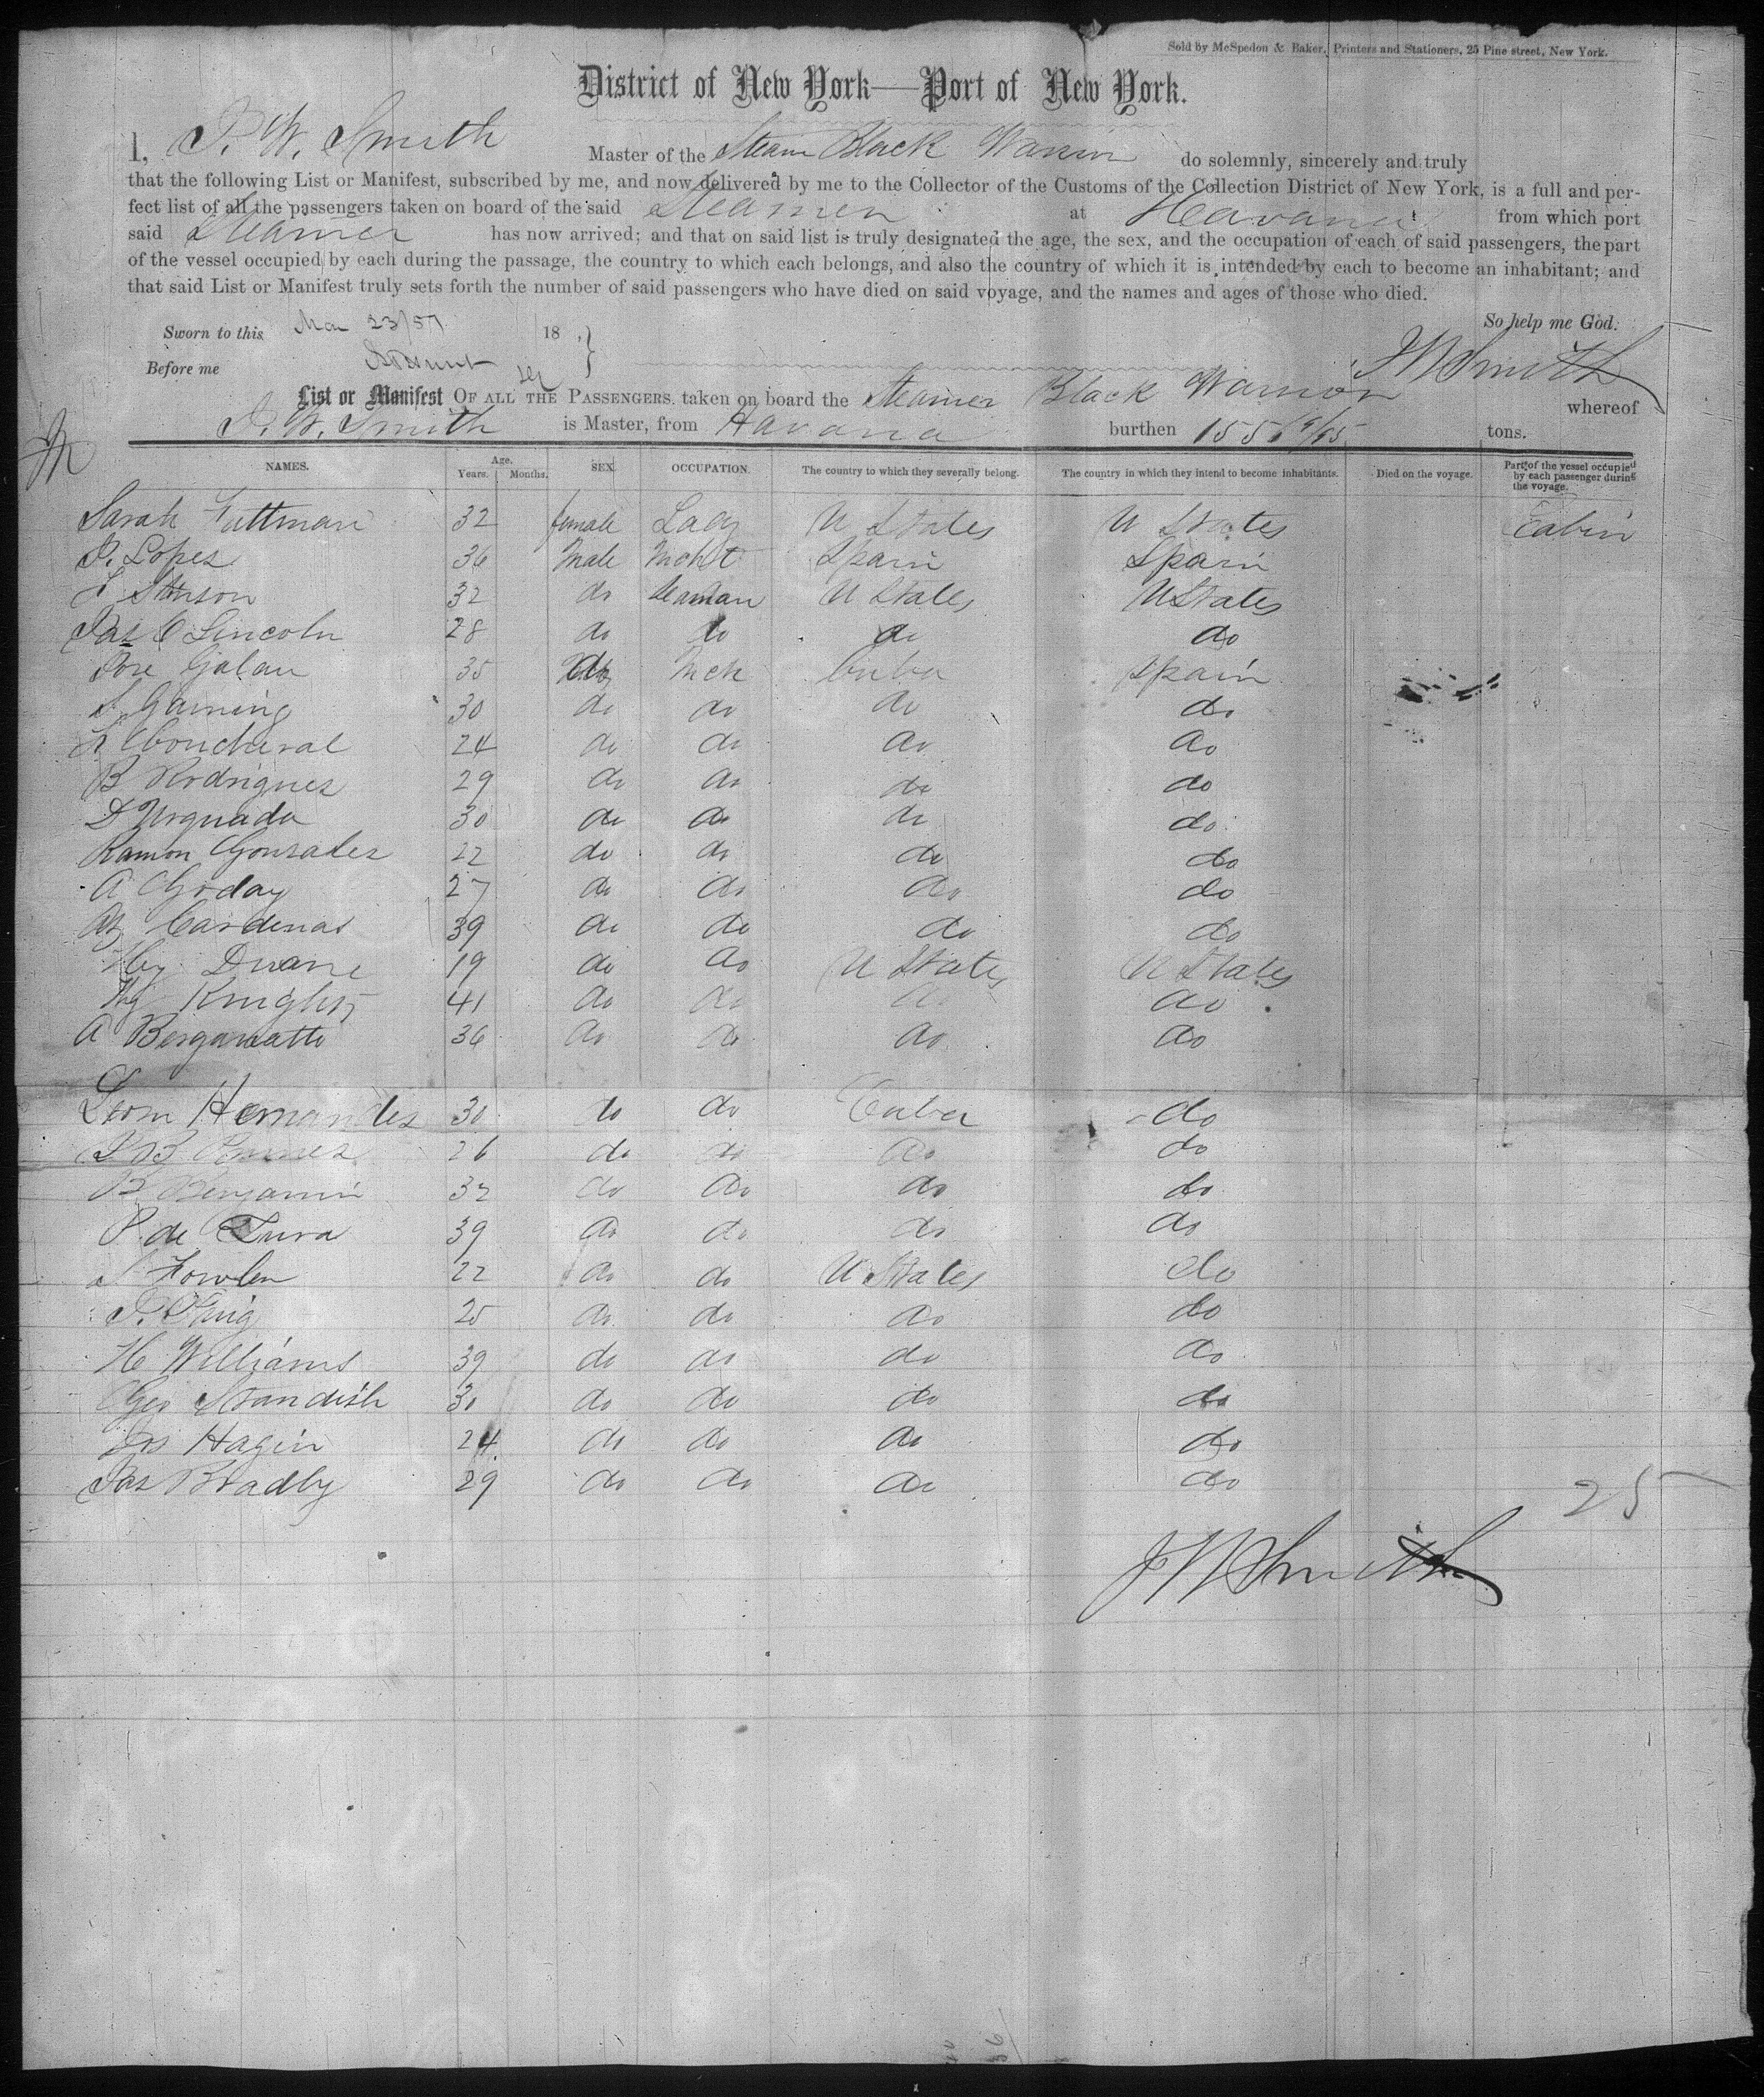 Sold by McSpedon & Baker, Printers and Stationers, 25 Pine street, New York.
District of New York—Port of New York.
I, J. W. Smith Master of the Steam Black Warrior do solemnly, sincerely and truly
that the following List or Manifest, subscribed by me, and now delivered by me to the Collector of the Customs of the Collection District of New York, is a full and per-
fect list of all the passengers taken on board of the said Steamer at Havana from which port
said Steamer has now arrived; and that on said list is truly designated the age, the sex, and the occupation of each of said passengers, the part
of the vessel occupied by each during the passage, the country to which each belongs, and also the country of which it is intended by each to become an inhabitant; and
that said List or Manifest truly sets forth the number of said passengers who have died on said voyage, and the names and ages of those who died.
So help me God.
Sworn to this Mar 23/57 18
J W Smith
Before me
List or Manifest OF ALL THE PASSENGERS taken on board the Steamer Black Warrior whereof
J. W. Smith is Master, from Havana burthen tons.
NAMES. Age. Years. Months. SEX. OCCUPATION. The country to which they severally belong. The country in which they intend to become inhabitants. Died on the voyage. Part of the vessel occupied by each passenger during the voyage.
Sarah 32 female Lady U States U States Cabin
J. Lopes 36 Male Mcht Spain Spain
32 do Seaman U States U States
Jas C Lincoln 28 do do do do
Jose Galan 35 do Mch Cuba Spain
30 do do do do
24 do do do do
B Rodrigues 29 do do do do
30 do do do do
Ramon Gonsales 22 do do do do
A Goday 27 do do do do
Cardenas 39 do do do do
Hy Duane 19 do do U States U States
Knight 41 do do do do
A 36 do do do do
Leon Hernandes 30 do do Cuba do
26 do do do do
B Benjamin 32 do do do do
P. de 39 do do do do
S Fowler 22 do do U States do
J. Puig 25 do do do do
H Williams 39 do do do do
Geo Standish 30 do do do do
Jos Hagin 24 do do do do
Jas Bradly 29 do do do do
25
J W Smith